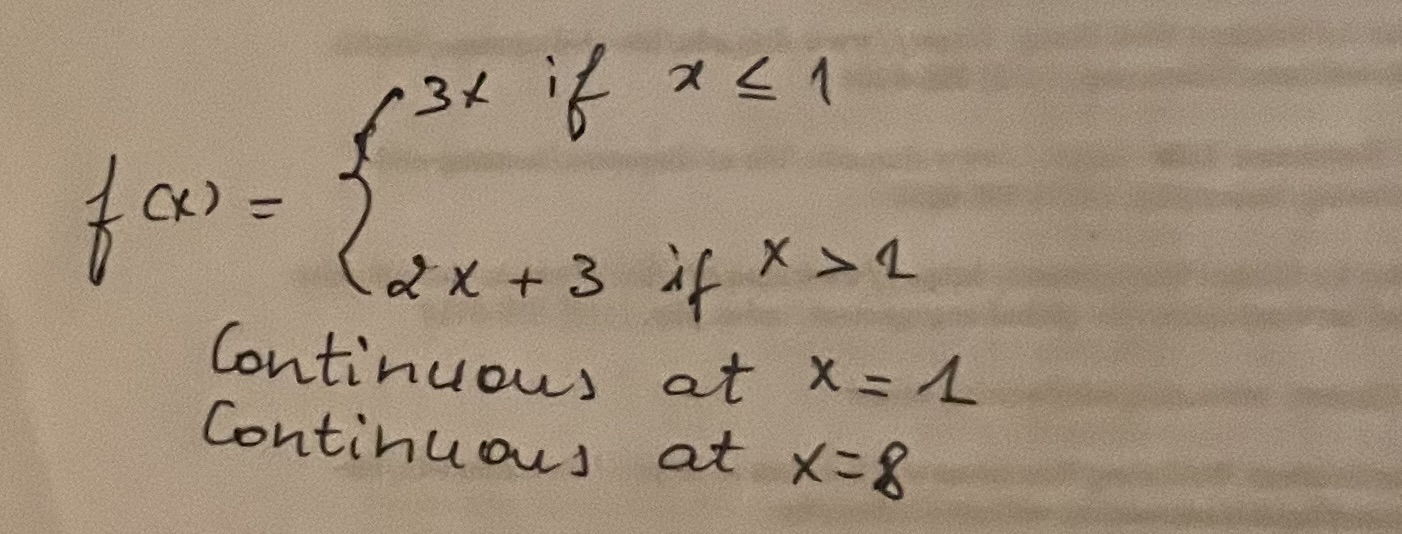 3x if x ≤ 1
f(x) = {
2x + 3 if x > 1
Continuous at x = 1
Continuous at x = 8